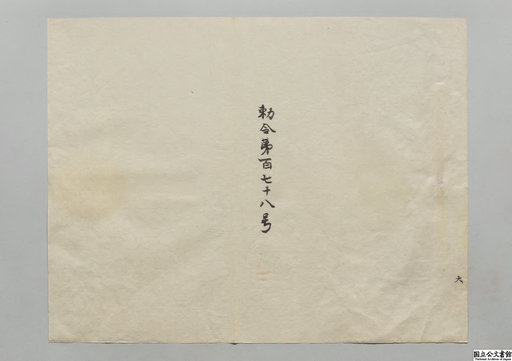 勅令第百七十八号
大
国立公文書館
National Archives of Japan